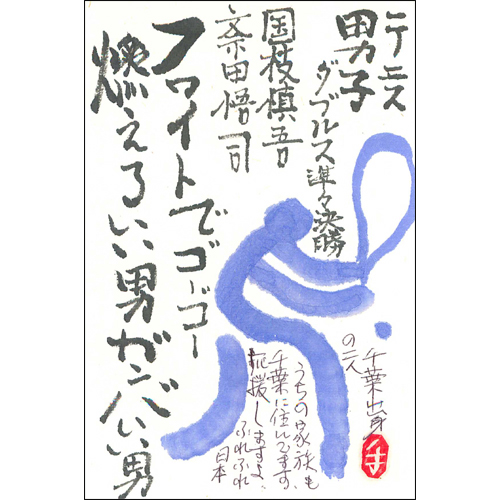 テニス
男子
ダブルス準々決勝
国枝慎吾
斎田悟司
ファイトでゴーゴー
燃えろいい男ガンバレいい男
千葉出身
の二人
うちの家族も
千葉に住んでます。
応援しますよ。
ふれふれ
日本